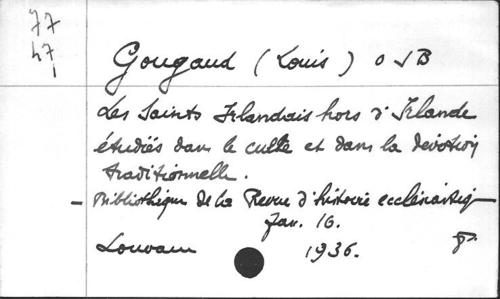 77
47
1
Gougaud (Louis) OSB
Les Saints Irlandais hors d'Irlande
étudiés dans le culte et dans la dévotion
traditionnelle.
- Bibliothèque de la Revue d'histoire ecclésiastiq
fav. 16.
Louvain 1936. 8°.